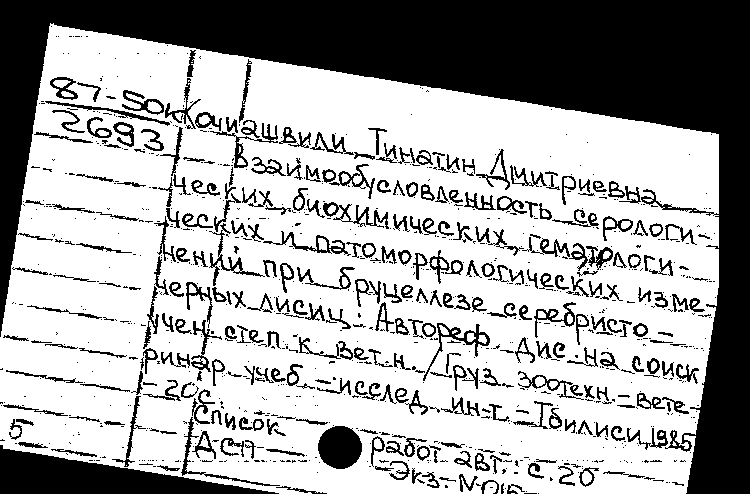 87-50к Кочиашвили, Тинатин Дмитриевна.
2693
Взаимообусловленность серологи-
ческих, биохимических, гематологи-
ческих и патоморфологических изме-
нений при бруцеллезе серебристо-
черных лисиц: Автореф. дис. на соиск.
учен. степ. к. вет. н. / Груз. зоотехн.-вете-
ринар. учеб.-исслед. ин-т. - Тбилиси, 1985
- 20 с.
Список работ авт.: с. 20
5 ДСП Экз. N 015